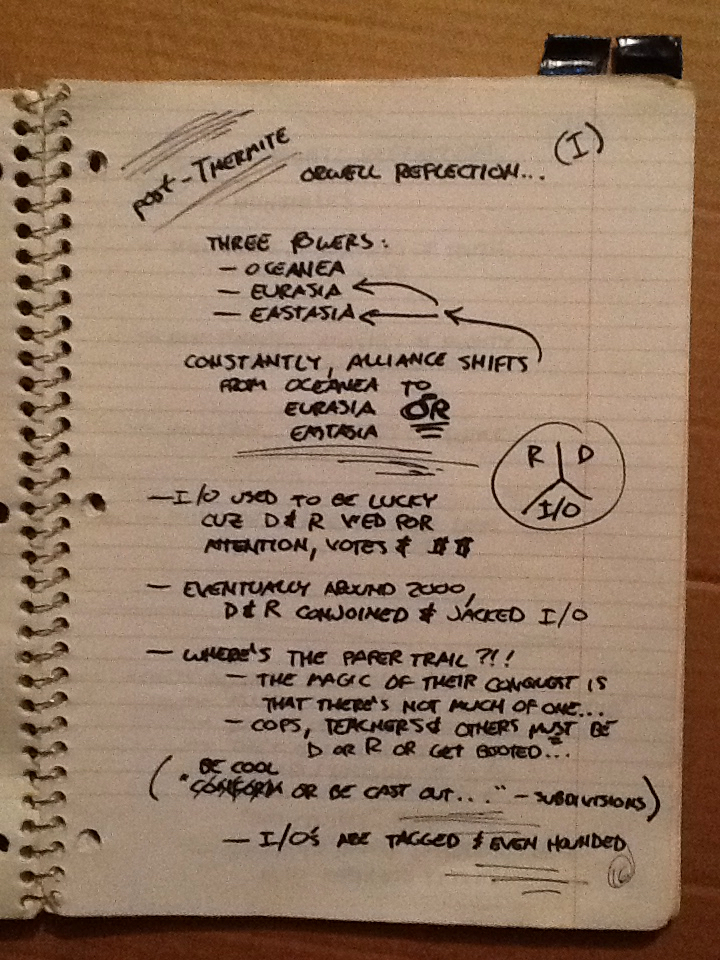 POST-THERMITE
ORWELL REFLECTION...
(I)
THREE POWERS:
- OCEANEA
- EURASIA
- EASTASIA
CONSTANTLY, ALLIANCE SHIFTS
FROM OCEANEA TO
EURASIA OR
EASTASIA
R D
I/O
- I/O USED TO BE LUCKY
CUZ D & R VIED FOR
ATTENTION, VOTES & $$
- EVENTUALLY AROUND 2000,
D & R CONJOINED & JACKED I/O
- WHERE'S THE PAPER TRAIL?!!
- THE MAGIC OF THEIR CONQUEST IS
THAT THERE'S NOT MUCH OF ONE...
- COPS, TEACHERS & OTHERS MUST BE
D OR R OR GET BOOTED...
BE COOL
("CONFORM OR BE CAST OUT..." - SUBDIVISIONS)
- I/O'S ARE TAGGED & EVEN HOUNDED
16